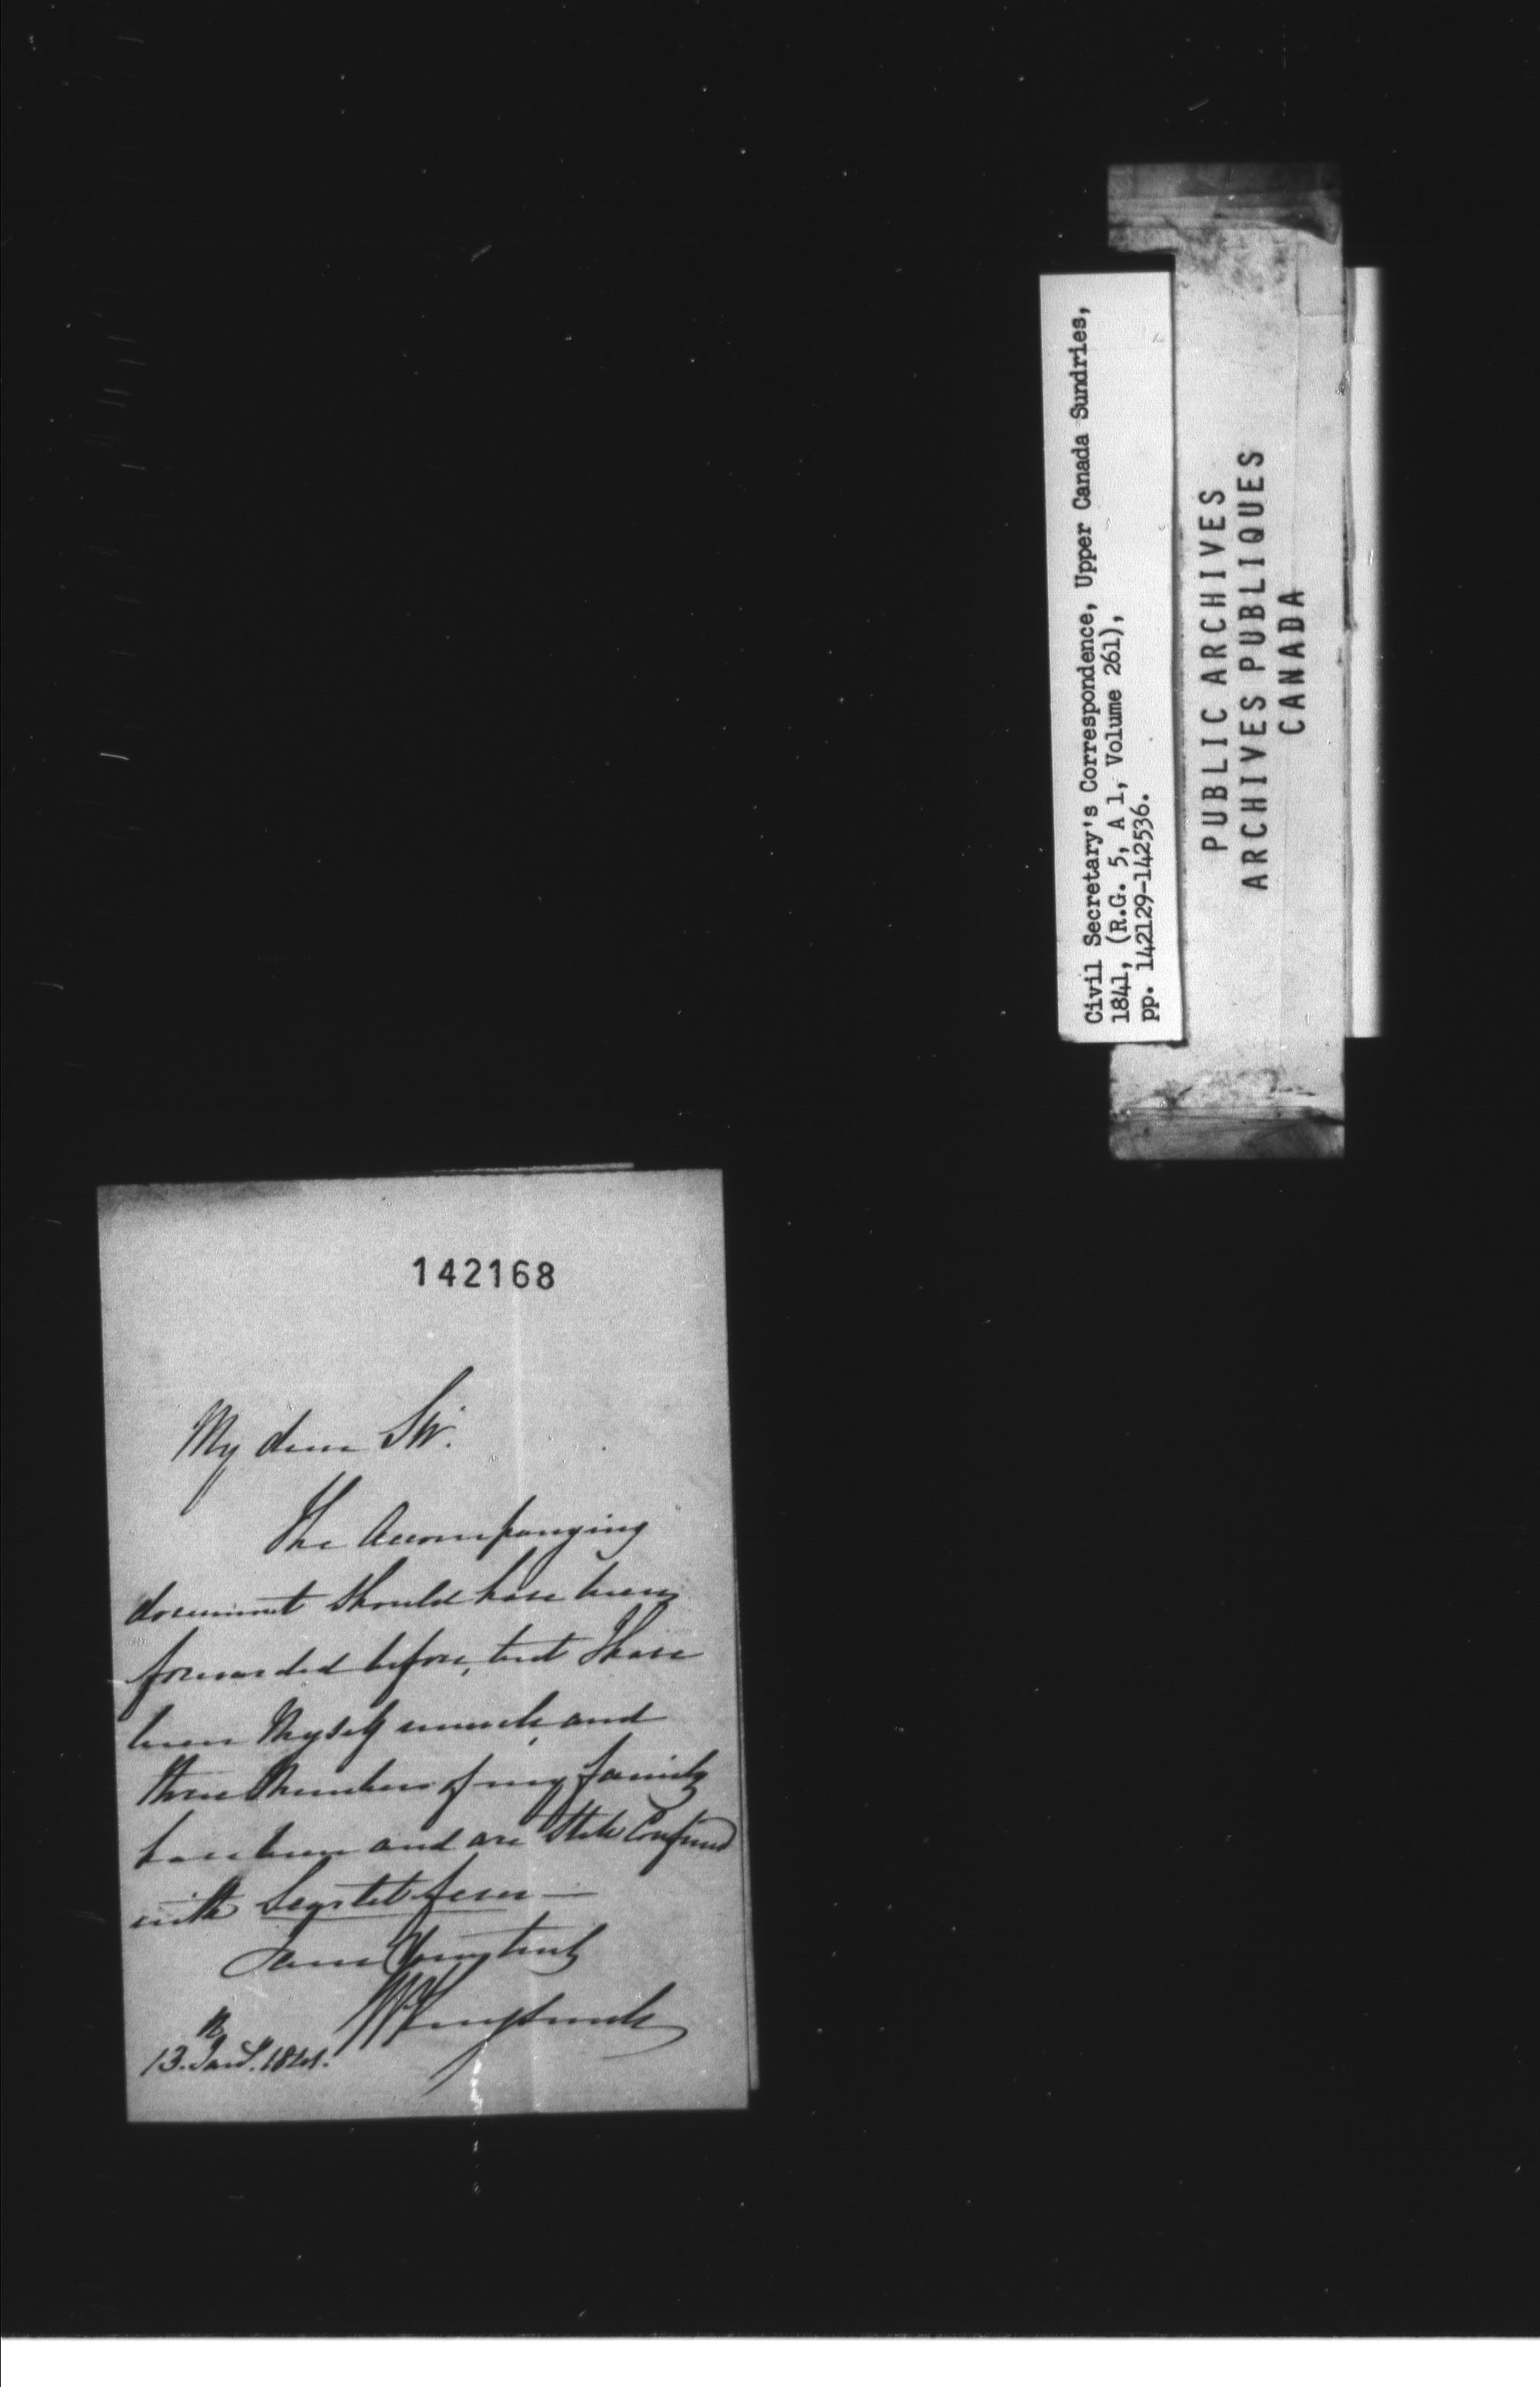 Civil Secretary's Correspondence, Upper Canada Sundries,
1841, (R.G. 5, A 1, Volume 261),
pp. 142129-142536.
PUBLIC ARCHIVES
ARCHIVES PUBLIQUES
CANADA
142168
My dear Sir.
The Accompanying
document should have been
forwarded before, but I have
been Myself unwell, and
three Members of my family
have been and are still Confined
with fever —
I am Yours truly
13th Jany. 1841.